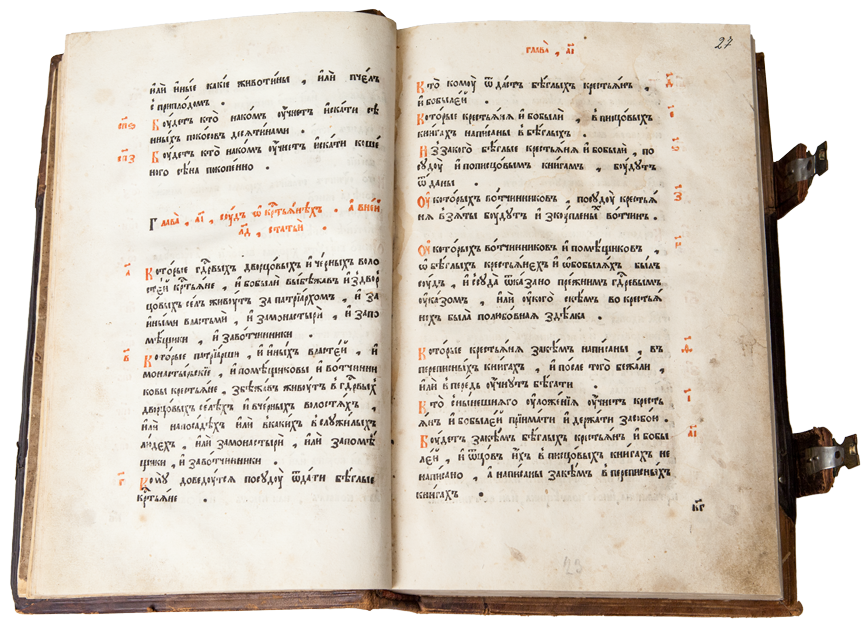 или иные какие животины , или пчелъ
с приплодомъ .
сп҃з
Бꙋдетъ кто на комъ оучнетъ искати сѣ
нныхъ покосовъ десятинами .
Бꙋдетъ кто на комъ оучнетъ искати коше
ного сѣна покопенно .
Глава , а҃і , сꙋдъ ѡ кр҃тьянехъ . а в ней
л҃д , статьи .
а҃
Которые гд҃рвыхъ дворцовыхъ и черныхъ воло
стей кр҃тьяне , и бобыли выбѣжавъ из двор
цовыхъ селъ живꙋтъ за патриархомъ , и за
иными властьми , и за монастыри , и за по
мѣщики , и за вотчинники .
в҃
Которые патриарши , и иныхъ властей , и
монастырские , и помѣщиковы и вотчинни
ковы крестьяне , збежавъ живꙋтъ в гд҃рвыхъ
дворцовыхъ селехъ и в черныхъ волостяхъ ,
или на посадехъ или в какихъ в слꙋжилыхъ
людехъ . или за монастыри , или за помѣ
щики , и за вотчинники .
г҃
Комꙋ доведꙋтся по сꙋдꙋ ѿдати бѣглые
кр҃тьяне .
глава , а҃і
27
Кто комꙋ ѿдастъ бѣглыхъ крестьянъ ,
и бобылей .
Которые крестьяня и бобыли , в писцовыхъ
книгахъ написаны в бѣглыхъ .
Из за кого бѣглые крестьяня и бобыли , по
сꙋдꙋ и по писцовымъ книгамъ , бꙋдꙋтъ
ѿданы .
з҃
Оу которыхъ вотчинниковъ , по сꙋдꙋ крестья
ня взяты бꙋдꙋтъ и з кꙋпленые вотчинъ .
Оу которыхъ вотчинниковъ и помѣщиковъ ,
ѡ бѣглыхъ крестьянехъ и ѡ бобыляхъ былъ
сꙋдъ , и с сꙋда ѿказано прежнимъ гд҃ревымъ
оуказомъ , или оу кого с кемъ во крестья
нехъ была полюбовная зделка .
Которые крестьяня за кемъ написаны , въ
переписныхъ книгахъ , и после того бежали ,
или впередъ оучнꙋтъ бегати .
Кто с нынешняго оуложения оучнетъ кресть
янъ и бобылей приимати и держати за собою .
а҃і
Бꙋдетъ за кемъ бѣглыхъ крестьян и бобы
лей , и ѿцовъ ихъ в писцовыхъ книгахъ не
написано , а написаны за кемъ в переписныхъ
книгахъ .
к҃г
23